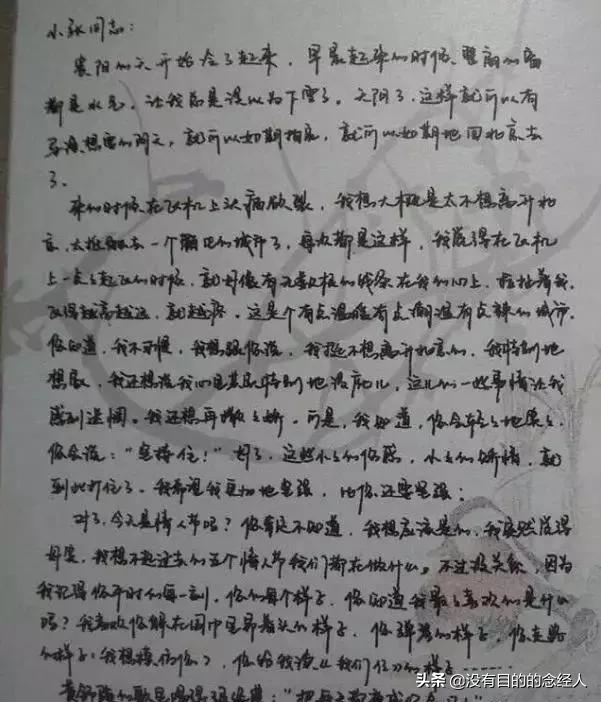 小张同志：
襄阳的天开始冷了起来，早晨起来的时候，整间的窗
都是水气，让我总是误以为下雪了。天阴了，这样就可以有
导演想要的阴天，就可以如期拍戏，就可以如期地回北京去
了。
来的时候在飞机上头痛欲裂，我想大概是太不想离开北
京，太抵触去一个陌生的城市了，每次都是这样，我觉得在飞机
上一点点起飞的时候，就好像有无数根的线牵在我的心上，拉扯着我，
飞得越高越远，就越疼。这是个有点温暖有点潮湿有点辣的城市，
你知道，我不习惯，我想跟你说，我挺不想离开北京的，我特别地
想家，我还想说我的心里其实特别地没底儿，这儿的一些事情让我
感到迷惘。我还想再撒撒娇。可是，我知道，你会轻轻地
你会说："坚持住！"好了，这些小小的伤感，小小的矫情，就
到此打住了。我希望我更加地坚强，比你还要坚强；
对了，今天是情人节吗？你肯定不知道，我想应该是的，我突然觉得
我想不起过去的五个情人节我们都在做什么。不过没关系，因为
我记得你平时的每一刻，你的每个样子，你知道我最喜欢的是什么
吗？我喜欢你躺在 里 的样子，你弹琴的样子，你走路
的样子（我想模仿你），你给我读《我们仨》的样子……
黄舒骏的歌是唱得 ："把每天都当成 ！"
头条 @没有目的的念经人